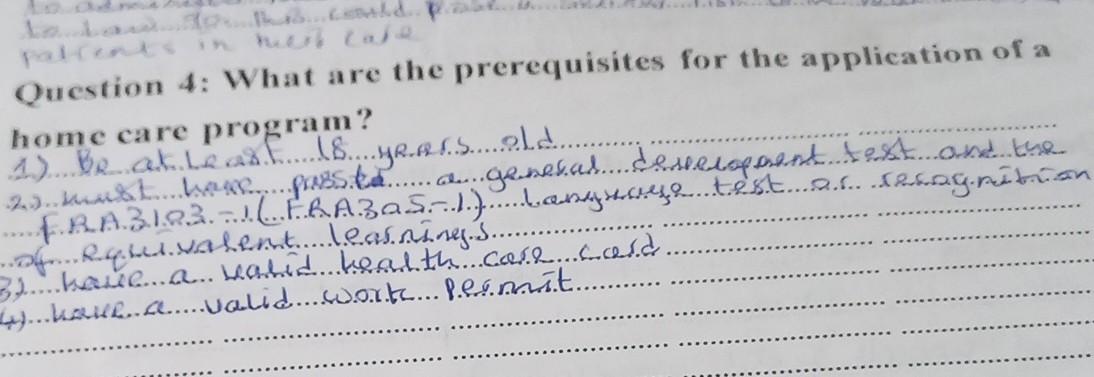 patients in their care
Question 4: What are the prerequisites for the application of a
home care program?
1) Be at Least 18 years old
2) must have passed a general development test and the
FRA3103-1 (FRA3a5-1) Language test or recognition
of equivalent learnings
3) have a valid health care card
4) have a valid work permit